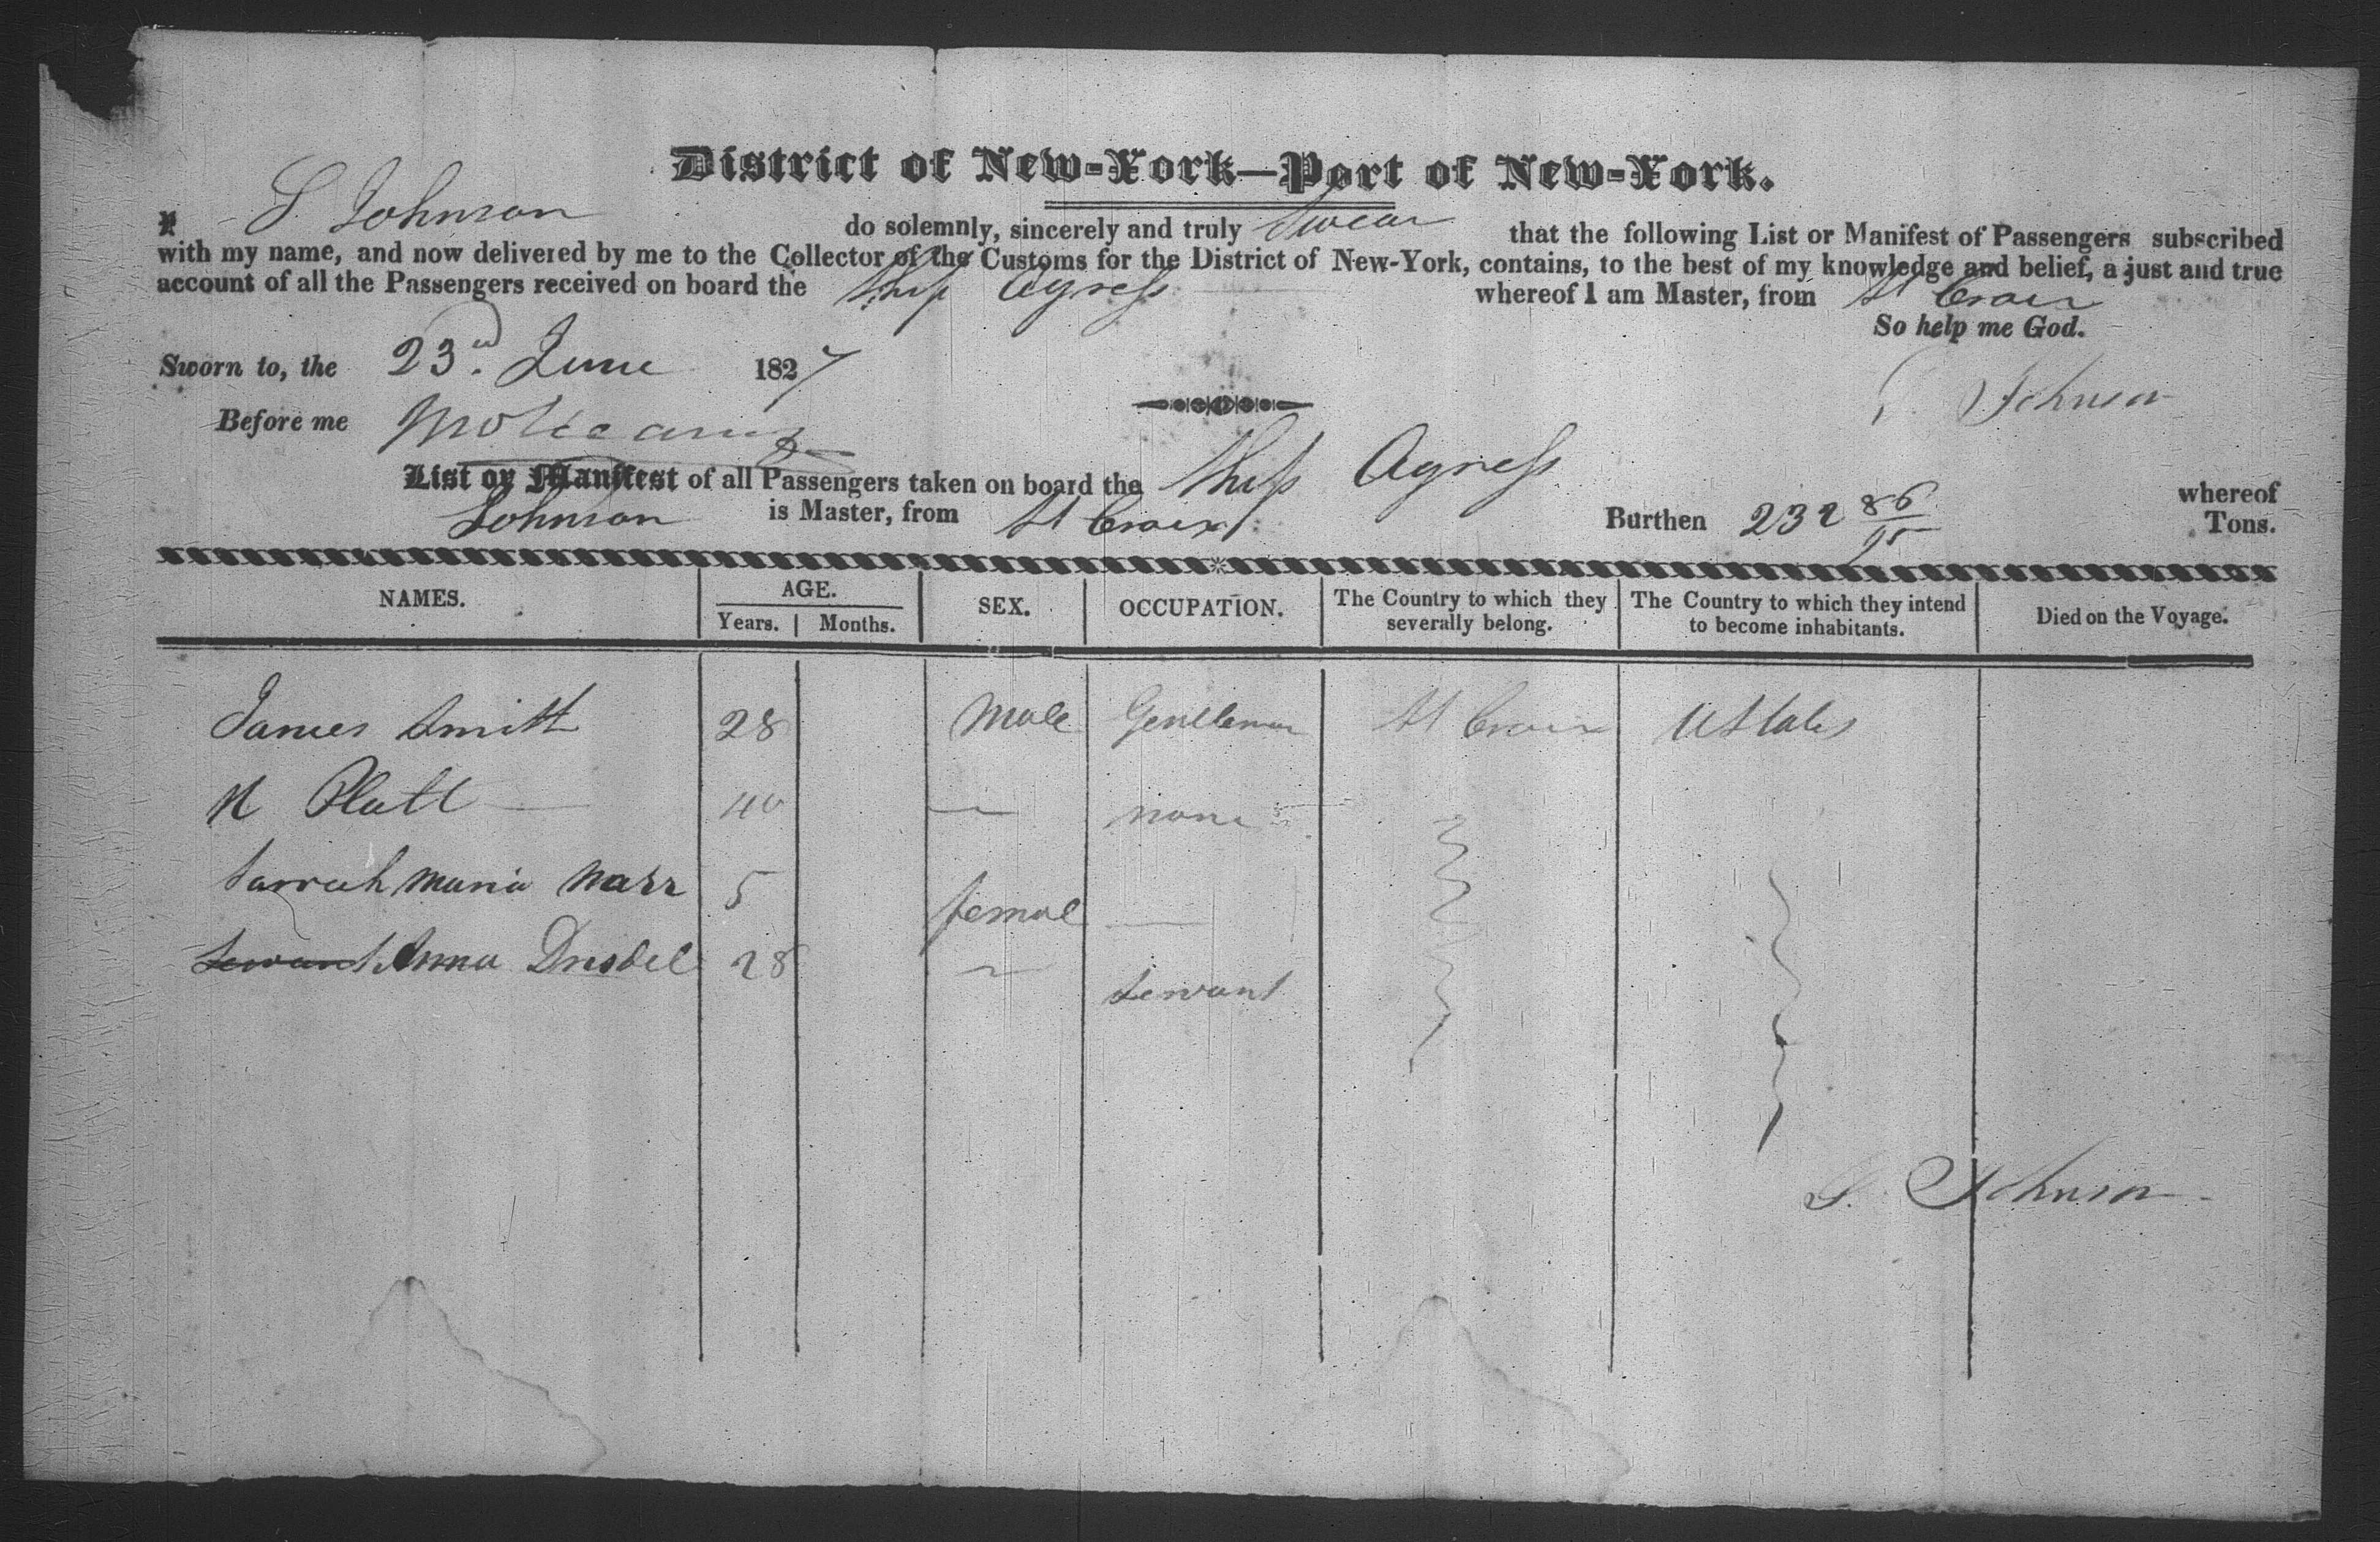 District of New-York—Port of New-York.
I S. Johnson do solemnly, sincerely and truly Swear that the following List or Manifest of Passengers subscribed
with my name, and now delivered by me to the Collector of the Customs for the District of New-York, contains, to the best of my knowledge and belief, a just and true
account of all the Passengers received on board the Ship Agness whereof I am Master, from St Croix
So help me God.
Sworn to, the 23rd June 1827
Johnson
Before me
List or Manifest of all Passengers taken on board the Ship Agness whereof
Johnson is Master, from St Croix Burthen 232 86/95 Tons.
NAMES. AGE. SEX. OCCUPATION. The Country to which they severally belong. The Country to which they intend to become inhabitants. Died on the Voyage.
Years. Months.
James Smith 28 Male Gentleman St Croix UStates
N Platt 40 — none
Sarrah Maria 5 femal —
Servant Anna 28 — Servant
S. Johnson